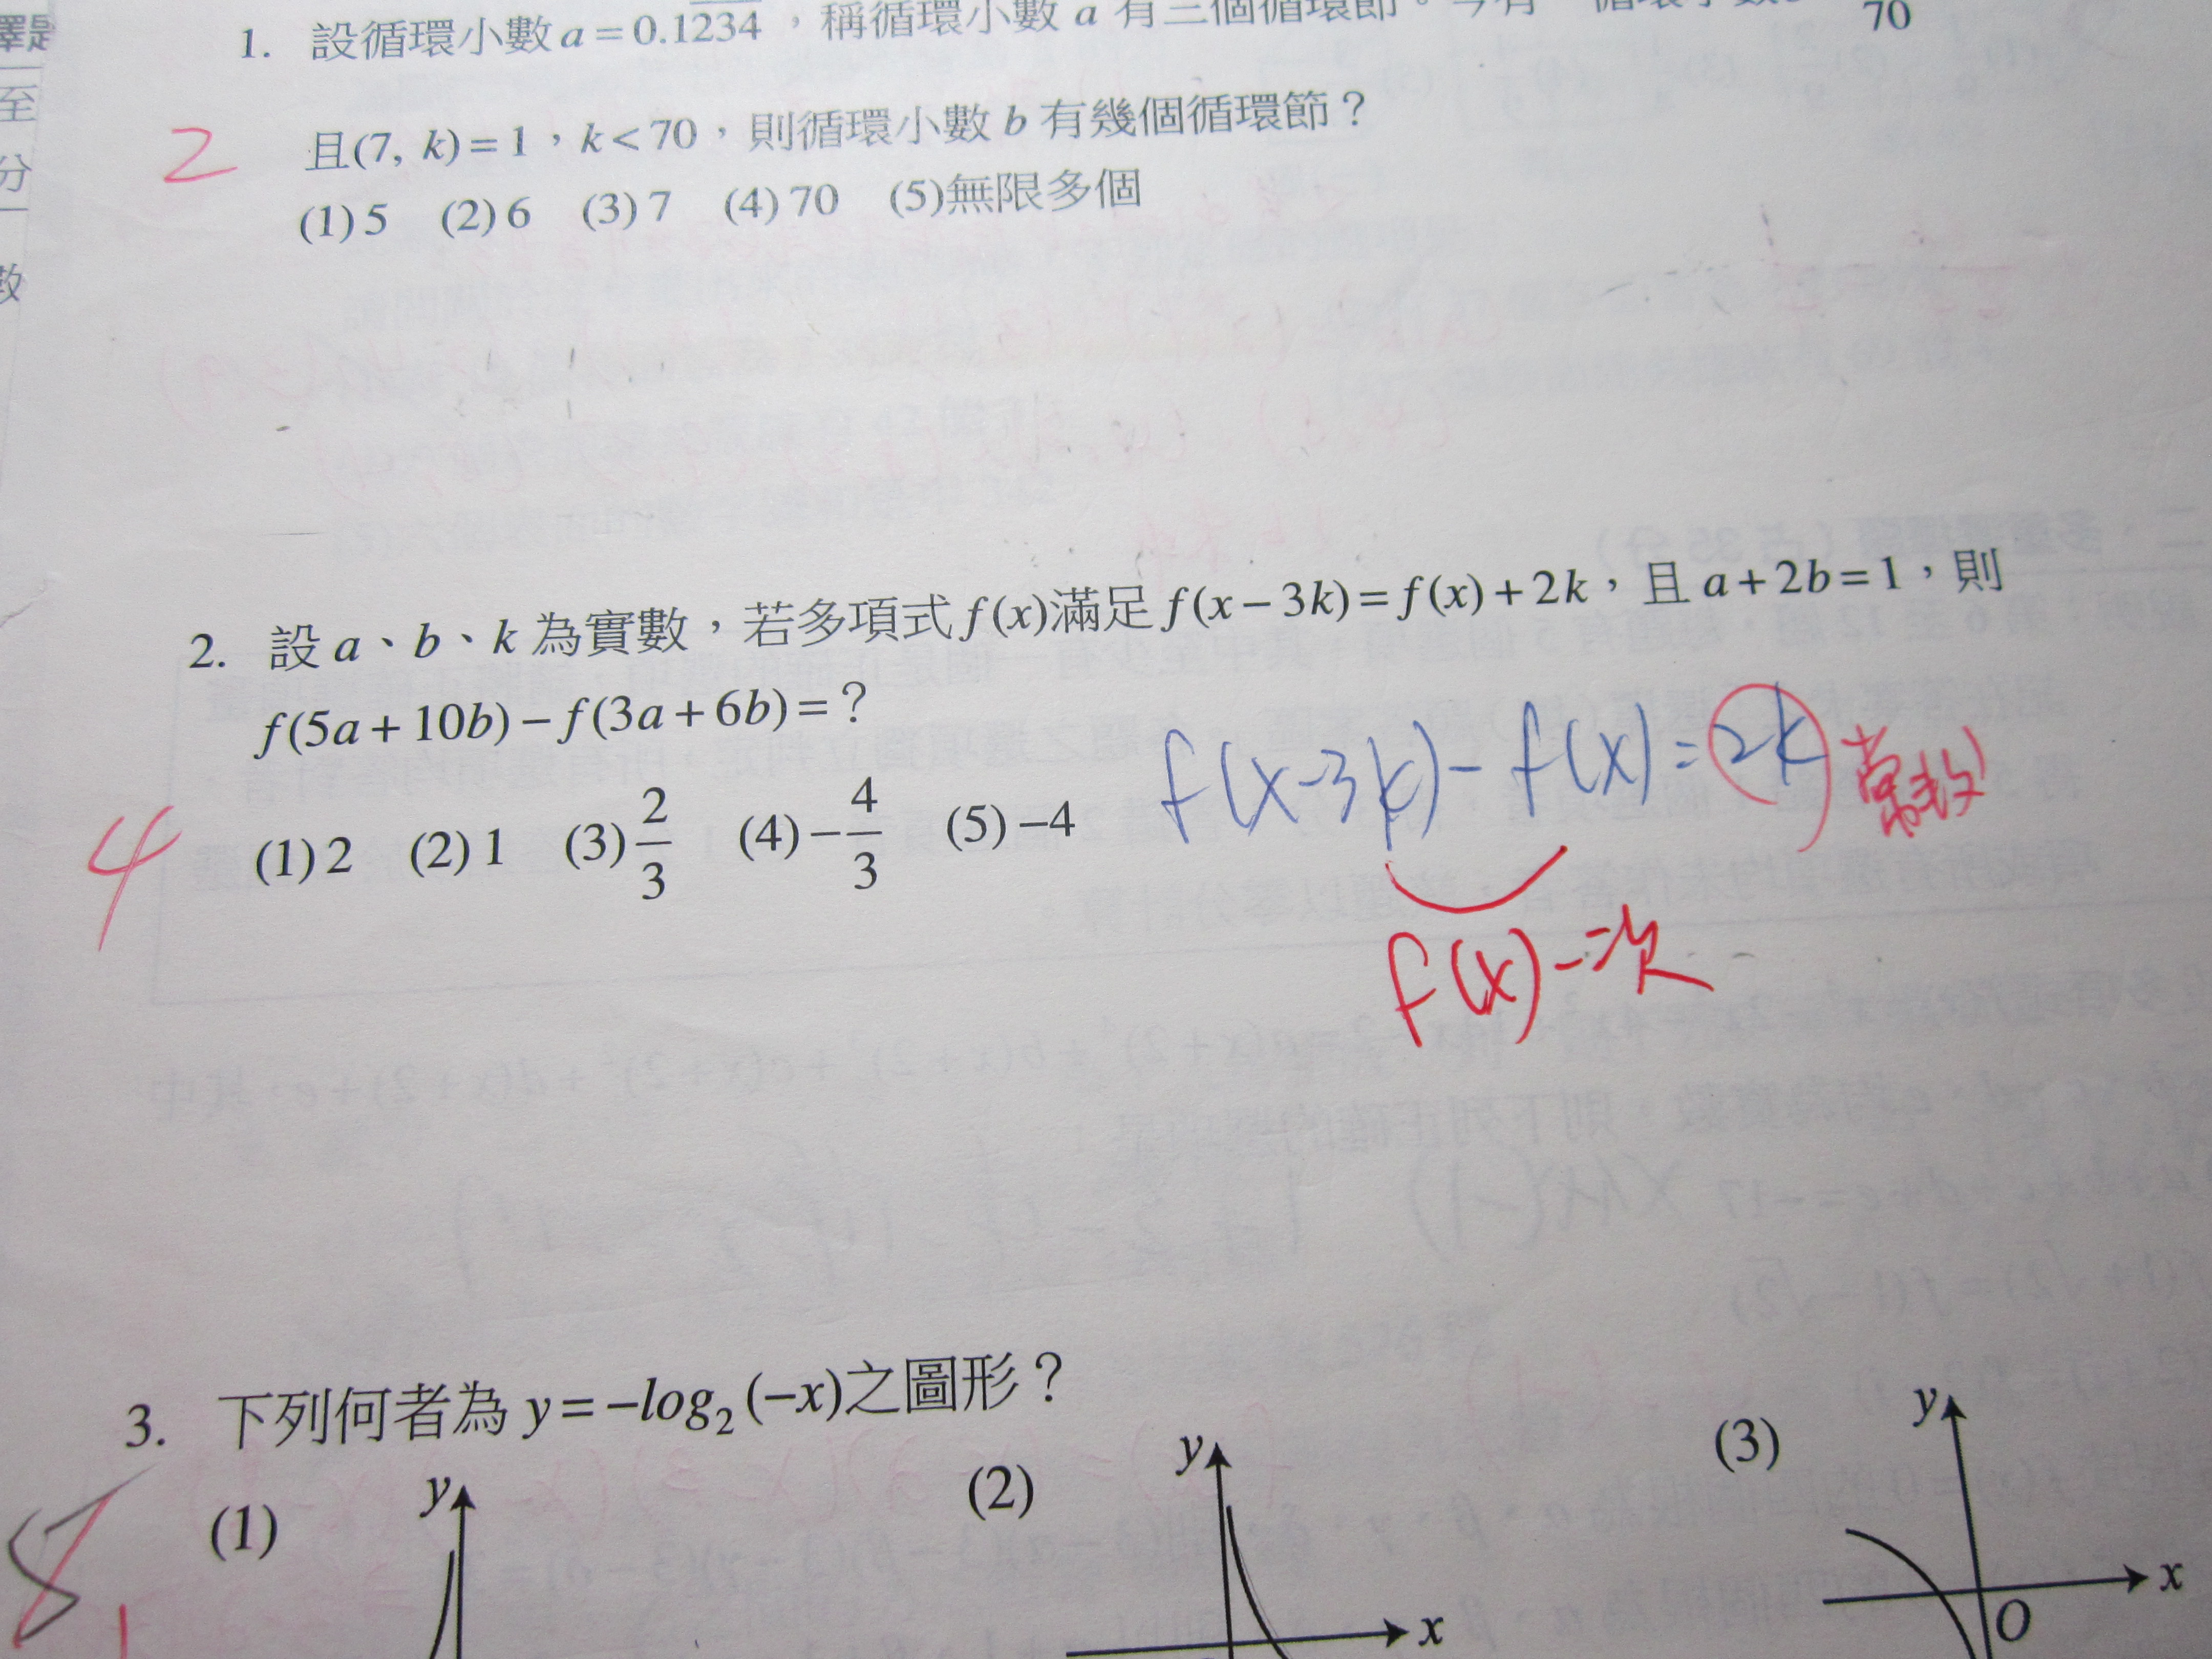 擇是
至
分
數
1. 設循環小數 a = 0.1\overline{234}，稱循環小數 a 有三個循環節。今有一循環小數
70
且(7, k) = 1，k < 70，則循環小數 b 有幾個循環節？
2
(1) 5 (2) 6 (3) 7 (4) 70 (5)無限多個
2. 設 a、b、k 為實數，若多項式 f(x)滿足 f(x − 3k) = f(x) + 2k，且 a + 2b = 1，則
f(5a + 10b) − f(3a + 6b) = ？
f(x-3k) - f(x) = 2k 常數
4
(1) 2 (2) 1 (3) 2/3 (4) −4/3 (5) −4
f(x) 一次
3. 下列何者為 y = −log₂(−x)之圖形？
8
1
(1) y
(2) y x
(3) y x O